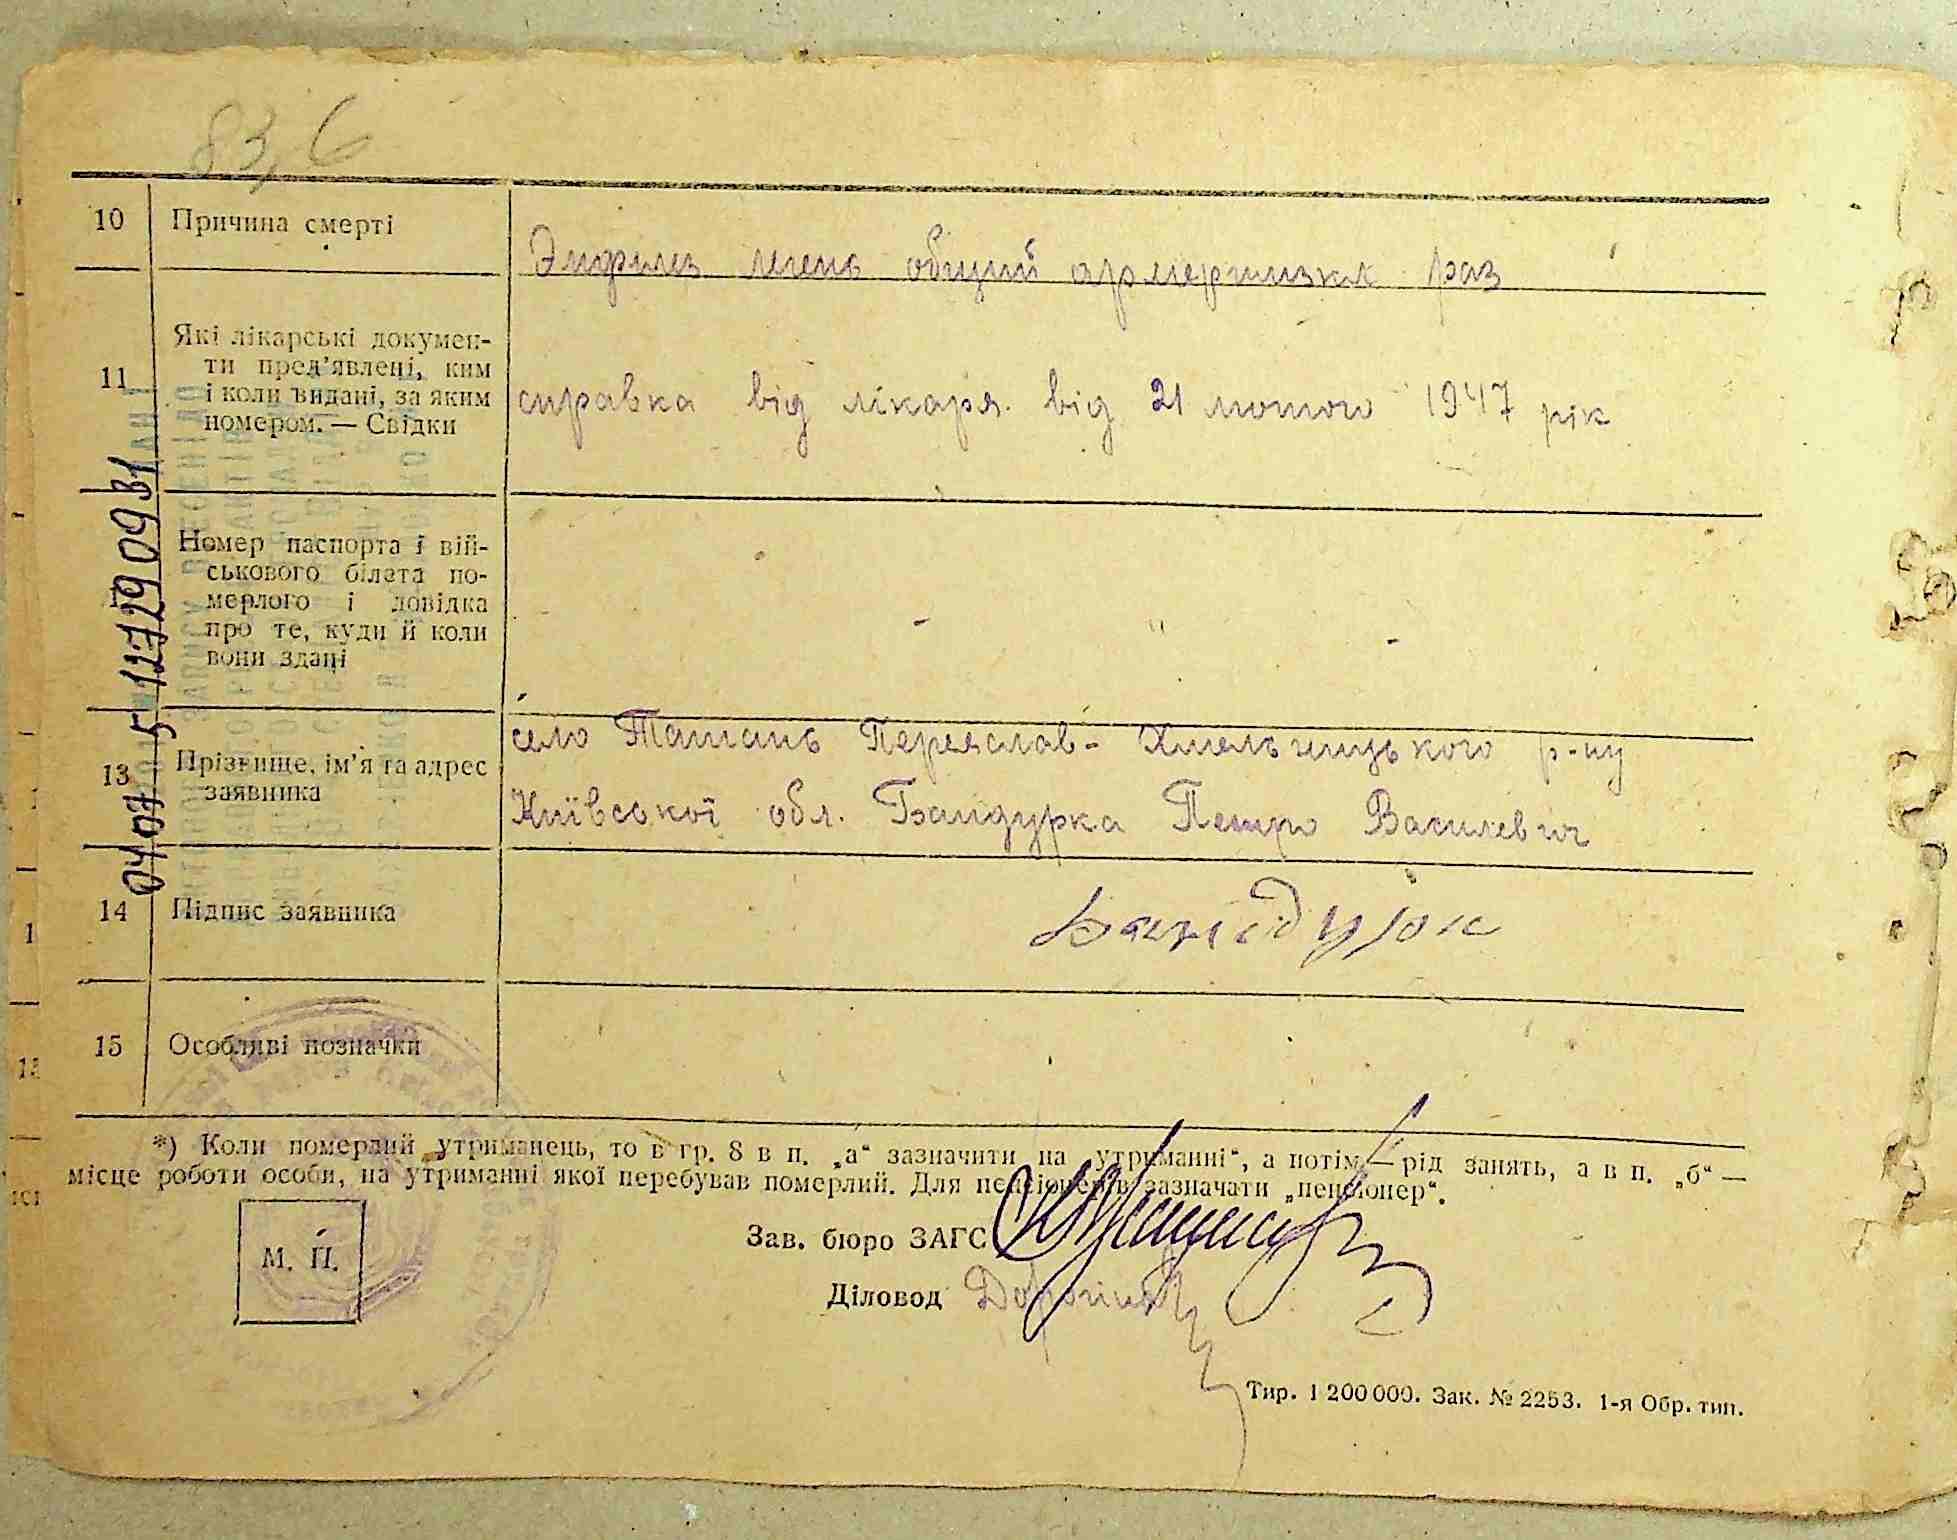 83,6
10 Причина смерті
легень общий раз
11 Які лікарські докумен-
ти пред’явлені, ким
і коли видані, за яким
номером. — Свідки
справка від лікаря. від 21 лютого 1947 рік
Номер паспорта і вій-
ськового білета по-
мерлого і довідка
про те, куди й коли
вони здані
- " -
13 Прізвище, ім’я та адрес
заявника
село Ташань Переяслав- Хмельницького р-ну
Київської обл. Бандурка Петро Василевич
14 Підпис заявника
Бандурка
15 Особливі позначки
*) Коли померлий утриманець, то в гр. 8 в п. „а“ зазначити на „утриманні“, а потім — рід занять, а в п. „б“ —
місце роботи особи, на утриманні якої перебував померлий. Для пенсіонерів зазначати „пенсіонер“.
М. П.
Зав. бюро ЗАГС
Діловод
Тир. 1 200 000. Зак. № 2253. 1-я Обр. тип.